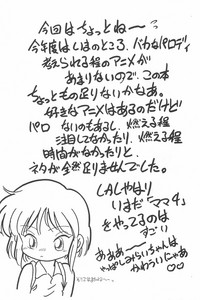 今回はちょっとねー〜?
今年度はいまのところ、バカなパロディ
考えられる程のアニメが
あまりないので、この本
ちょっともの足りないかもぁ。
好きなアニメはあるのだけど
パロ ないのもあるし、燃える程
注目してなかったり、燃える程
時間がなかったりと
ネタが全然足りませんでした。
しかしやはり
いまだ「ママ4」
をやってるのは
すごい
あぁあ〜〜
やっぱしみらいちゃんは
かわういじゃあ